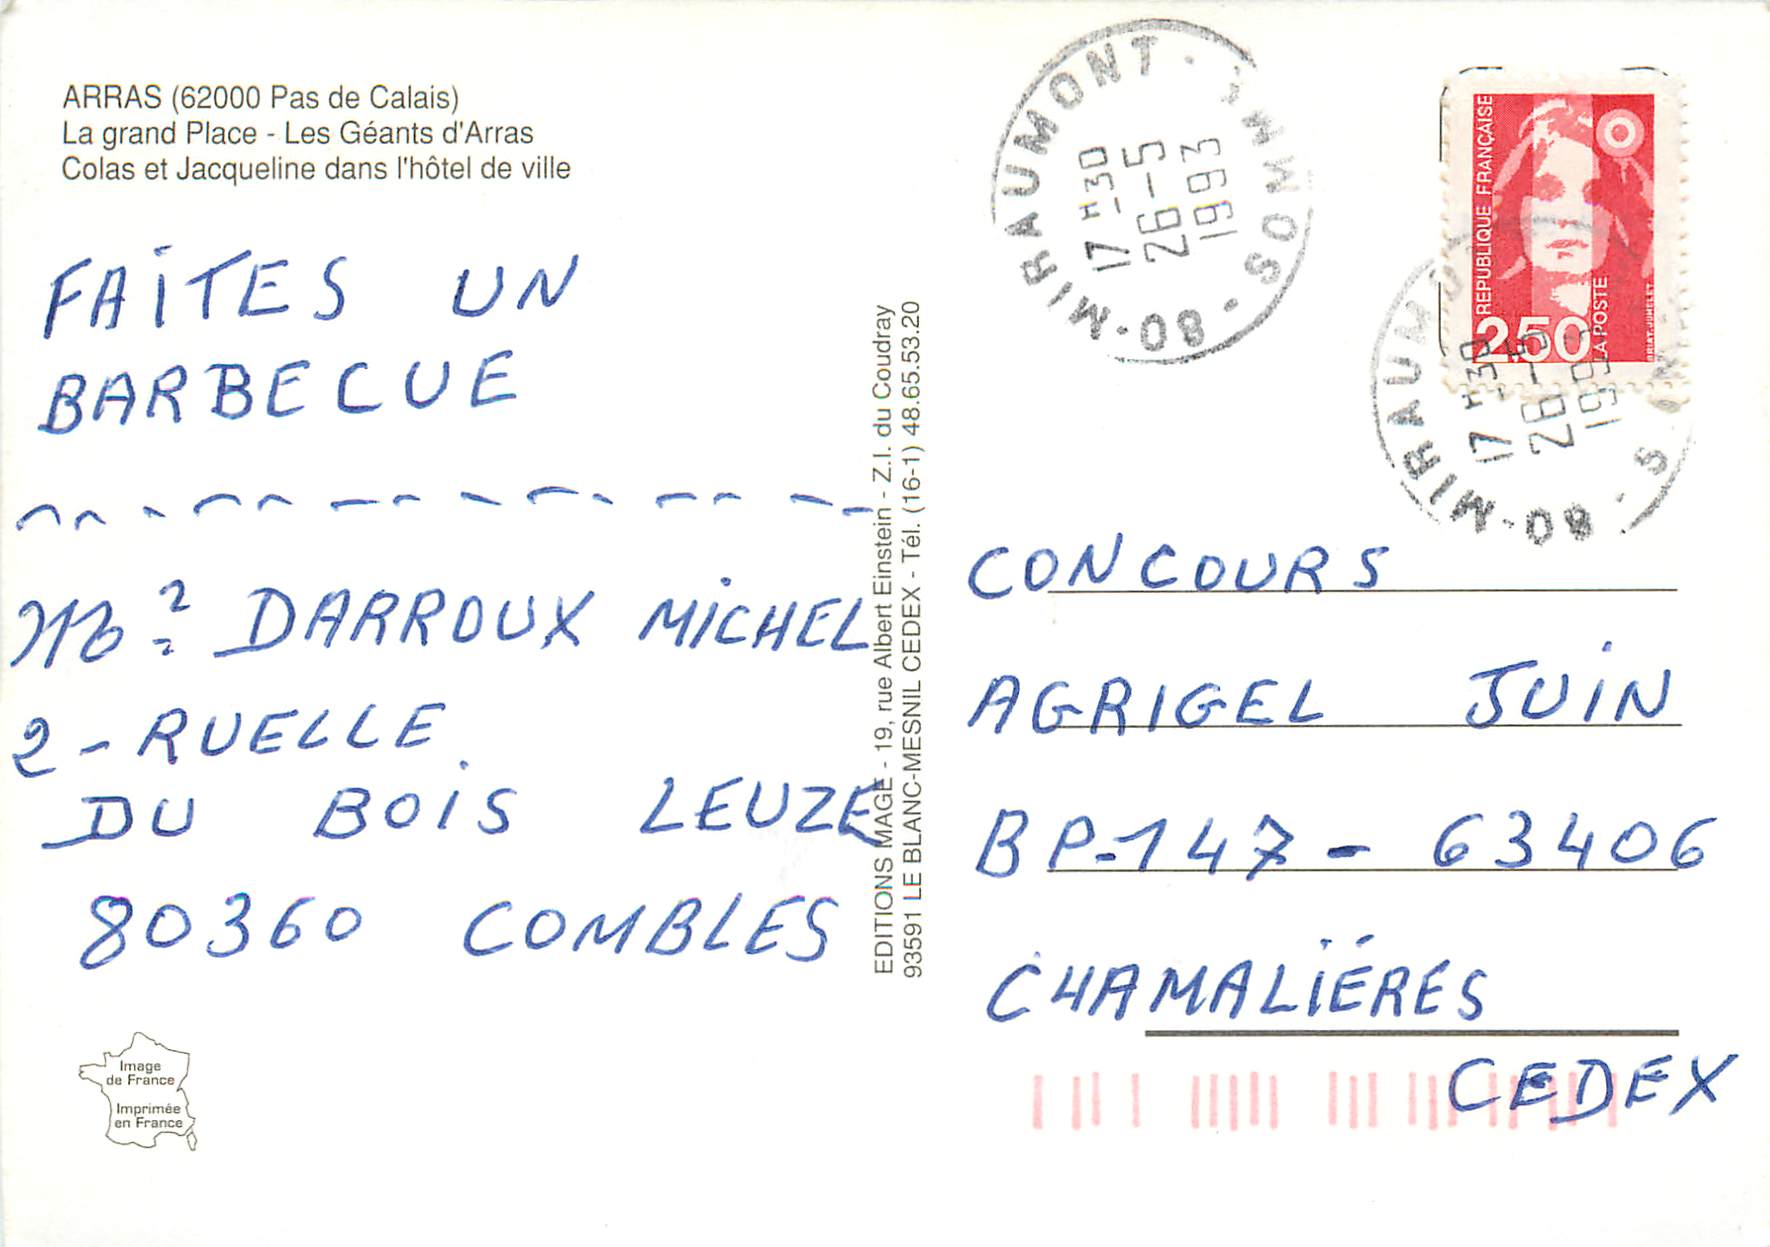 ARRAS (62000 Pas de Calais)
La grand Place - Les Géants d'Arras
Colas et Jacqueline dans l'hôtel de ville
FAITES UN
BARBECUE
DARROUX MICHEL
2 - RUELLE
DU BOIS LEUZE
80360 COMBLES
Image
de France
Imprimée
en France
EDITIONS MAGE - 19, rue Albert Einstein - Z.I. du Coudray
93591 LE BLANC-MESNIL CEDEX - Tél. (16-1) 48.65.53.20
80-MIRAUMONT - SOMME
17H30
26-5
1993
REPUBLIQUE FRANÇAISE
2,50
LA POSTE
80-MIRAUMONT
17H30
26-5
1993
CONCOURS
AGRIGEL JUIN
BP-147 - 63406
CHAMALIÉRES
CEDEX